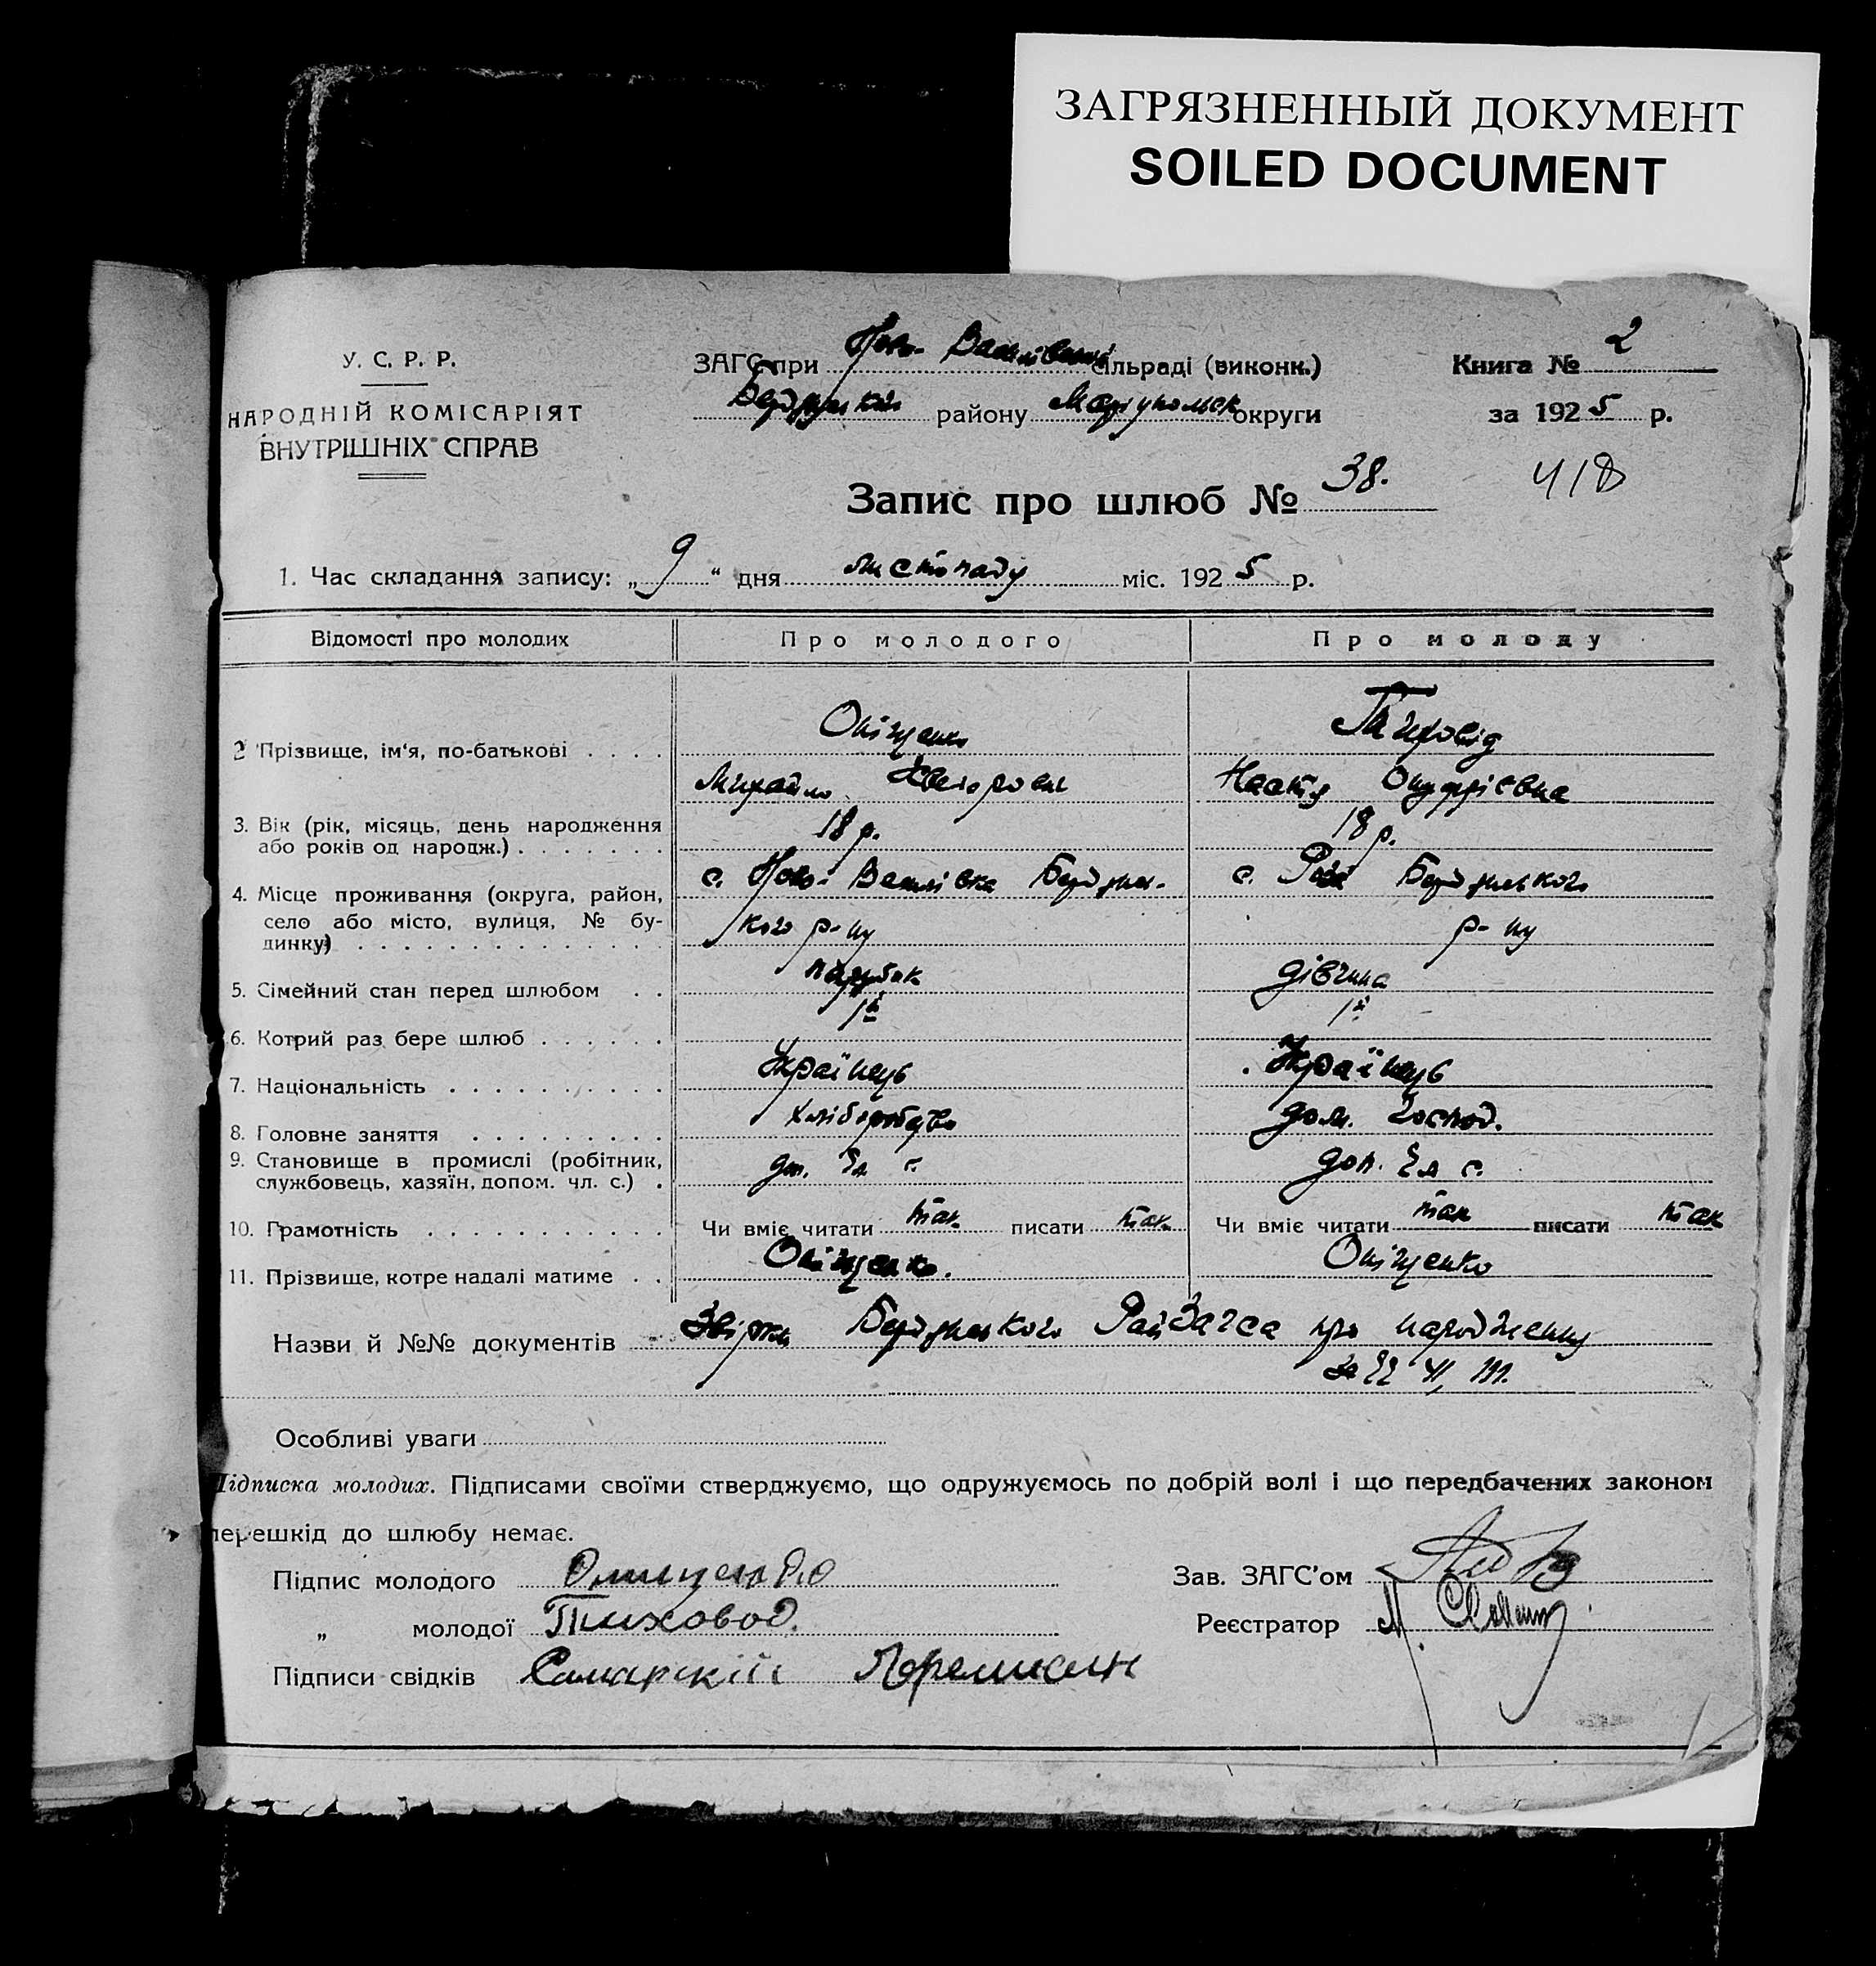 ЗАГРЯЗНЕННЫЙ ДОКУМЕНТ
SOILED DOCUMENT
У. С. Р. Р.
НАРОДНІЙ КОМІСАРІЯТ
ВНУТРІШНІХ СПРАВ
ЗАГС при Ново- Василівській сільраді (виконк.)
Бердянський району Маріупольск округи
Книга № 2
за 1925 р.
418
Запис про шлюб № 38.
1. Час складання запису: „ 9 “ дня листопаду міс. 1925 р.
Відомості про молодих Про молодого Про молоду
Оніщенко
2 Прізвище, ім‘я, по-батькові . . . .
Михайло Настя Онуфрієвна
3. Вік (рік, місяць, день народження 18 р. 18 р.
або років од народж.) . . . . . . .
4. Місце проживання (округа, район, с. Ново- Василівка Бердянсь- с. Бердянського
село або місто, вулиця, № бу- кого р-ну р-ну
динку) . . . . . . . . . . . . .
5. Сімейний стан перед шлюбом . . парубок дівчина
6. Котрий раз бере шлюб . . . . . . 1й 1й
7. Національність . . . . . . . . . . Українець Українець
8. Головне заняття . . . . . . . . . хліборобство дом. господ.
9. Становище в промислі (робітник, доп. чл с. доп. чл с.
службовець, хазяїн, допом. чл. с.) .
10. Грамотність . . . . . . . . . . . Чи вміє читати так писати так Чи вміє читати так писати так
11. Прізвище, котре надалі матиме . . Оніщенко. Оніщенко
Назви й №№ документів Бердянського РайЗагса про народження
за
Особливі уваги
Підписка молодих. Підписами своїми стверджуємо, що одружуємось по добрій волі і що передбачених законом
перешкід до шлюбу немає.
Підпис молодого Онищенко Зав. ЗАГС’ом
„ молодої Тиховод. Реєстратор М.
Підписи свідків Самарский